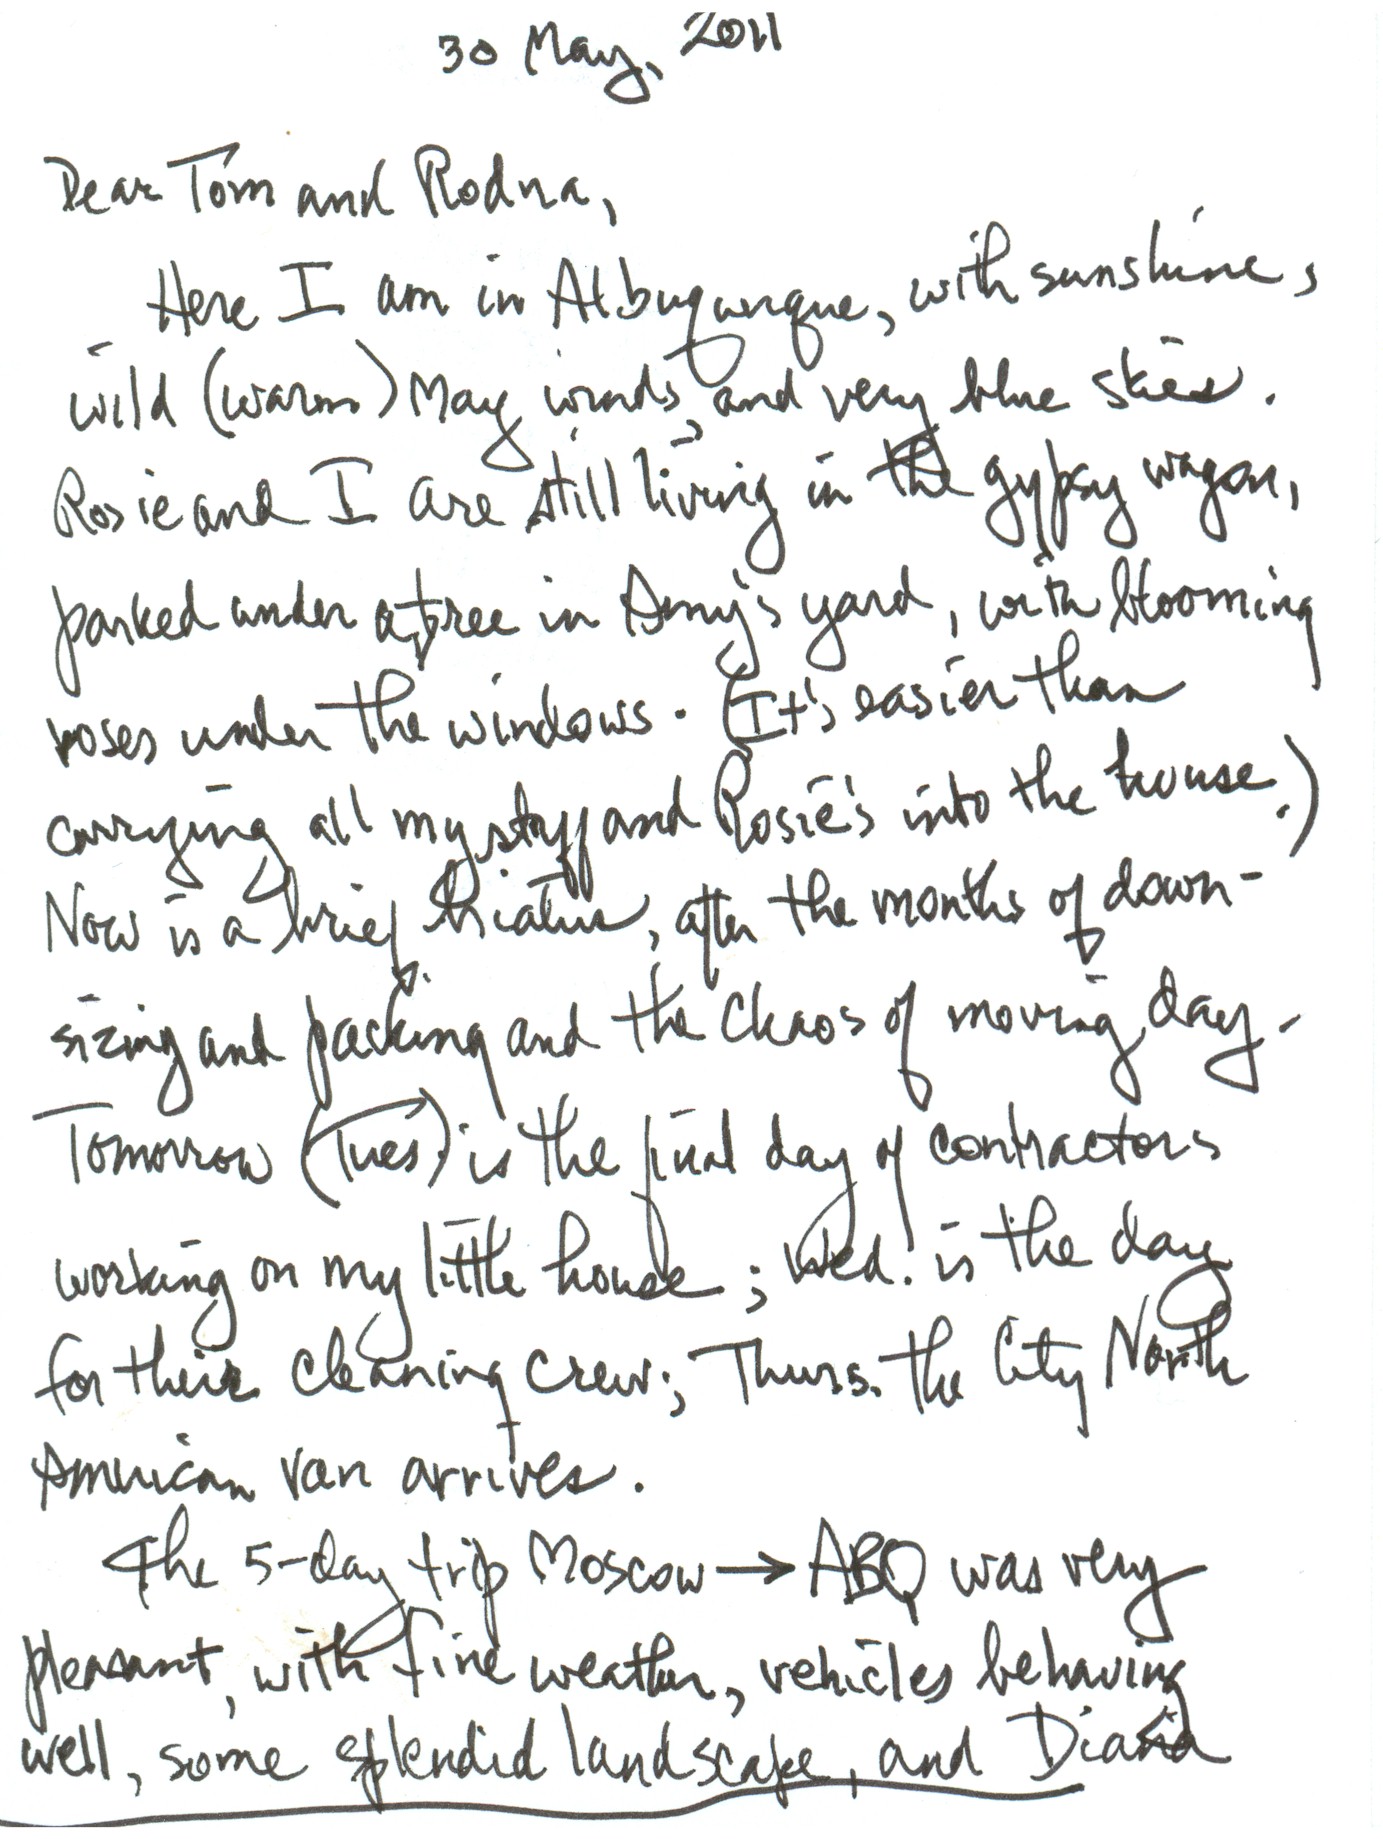 30 May, 2011
Dear Tom and Rodna,
Here I am in Albuquerque, with sunshine,
wild (warm) May winds, and very blue skies.
Rosie and I are still living in the gypsy wagon,
parked under a tree in Amy's yard, with blooming
roses under the windows. (It's easier than
carrying all my stuff and Rosie's into the house.)
Now is a brief hiatus, after the months of down-
sizing and packing and the chaos of moving day.
Tomorrow (Tues.) is the final day of contractors
working on my little house; Wed. is the day
for their cleaning crew; Thurs. the City North
American van arrives.
The 5-day trip Moscow → ABQ was very
pleasant, with fine weather, vehicles behaving
well, some splendid landscape, and Diana